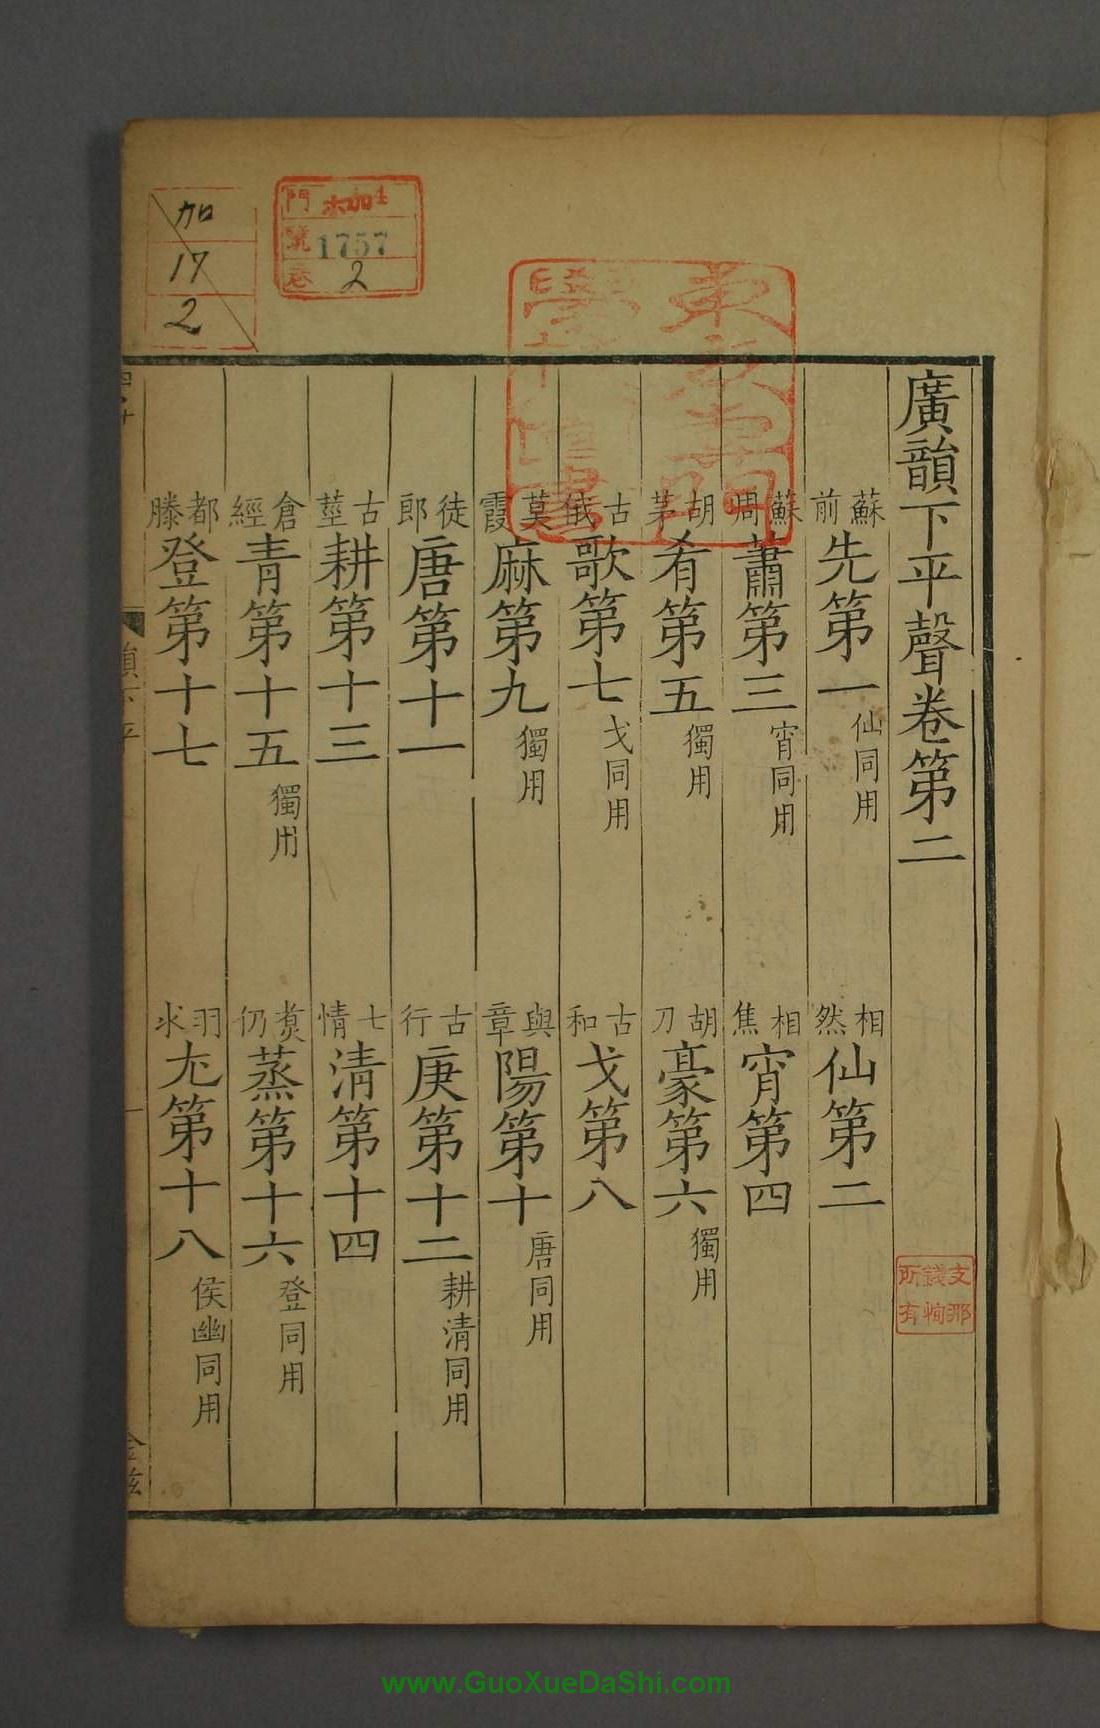 廣韻下平聲卷第二
蘇前先第一仙同用 相然仙第二
蘇周蕭第三宵同用 相焦宵第四
胡茅肴第五獨用 胡刀豪第六獨用
古俄歌第七戈同用 古和戈第八
莫霞麻第九獨用 與章陽第十唐同用
徒郎唐第十一 古行庚第十二耕清同用
古莖耕第十三 七情清第十四
倉經青第十五獨用 煑仍蒸第十六登同用
都滕登第十七 羽求尤第十八侯幽同用
門 號 1757 卷 2
加 17 2
支那錢恂所有
www.GuoXueDaShi.com